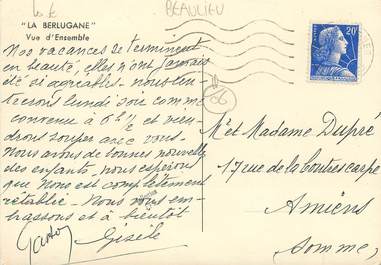 BEAULIEU
"LA BERLUGANE"
Vue d'Ensemble
Nos vacances se terminent
en beauté, elles n'ont jamais
été si agréables. nous ren-
trerons lundi soir comme
convenu à 6 h ½ et vien-
drons souper avec vous.
Nous avons de bonnes nouvelles
des enfants, nous espérons
que Nono est complètement
rétablie. Nous vous em-
brassons et à bientôt
Gaston Gisèle
20F
66
Mr et Madame Dupré
17 rue de la Contrescarpe
Amiens
Somme